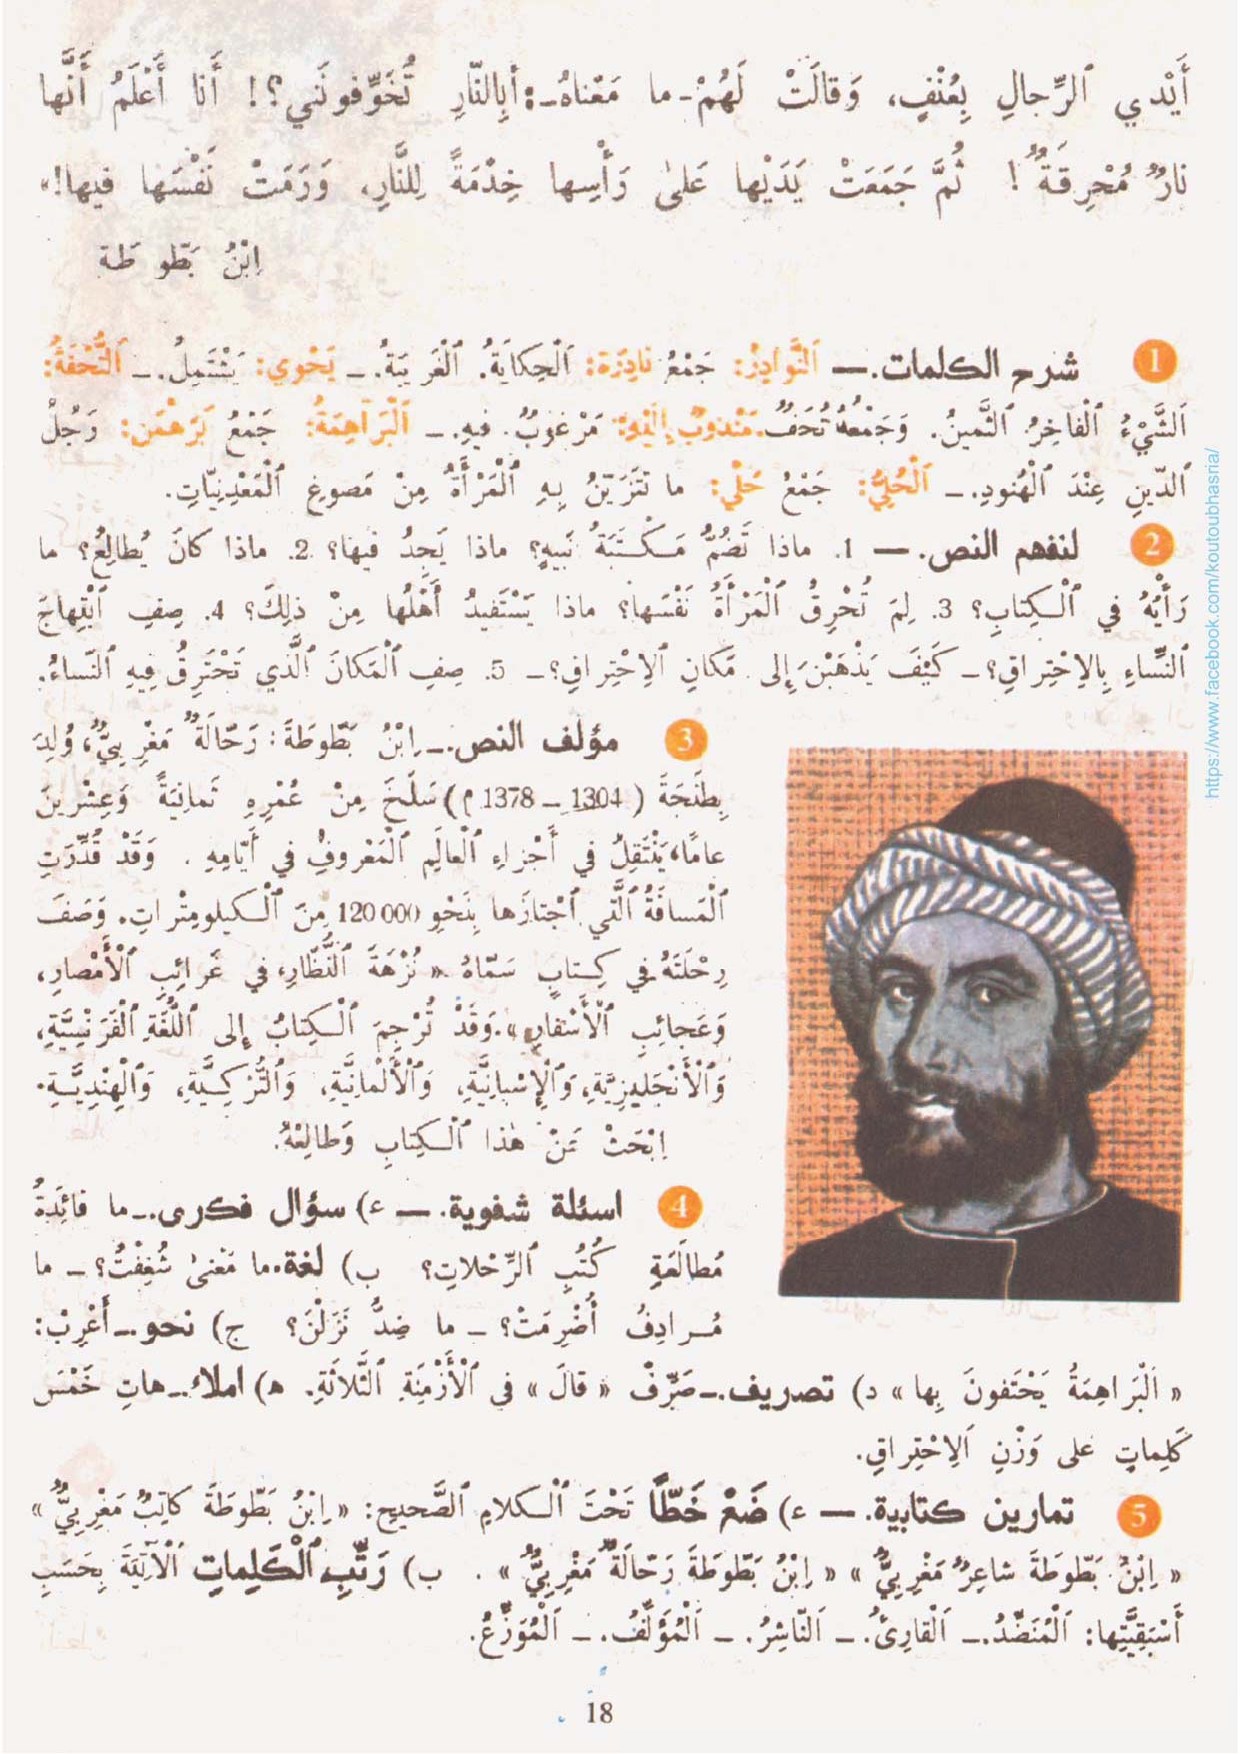 أَيْدي ٱلرِّجالِ بِعُنْفٍ، وَقالَتْ لَهُمْ ـ ما مَعْناهُ ـ: أَبِالنّارِ تُخَوِّفونَني؟! أَنا أَعْلَمُ أَنَّها
نارٌ مُحْرِقَةٌ! ثُمَّ جَمَعَتْ يَدَيْها عَلىٰ رَأْسِها خِدْمَةً لِلنَّارِ، وَرَمَتْ نَفْسَها فيها!»
اِبْنُ بَطّوطَة
1 شرح الكلمات. — اَلنَّوادِرُ: جَمْعُ نادِرَة: اَلْحِكايَةُ. اَلْغَريبَةُ. ـ يَحْوي: يَشْتَمِلُ. ـ اَلتُّحْفَةُ:
اَلشَّيْءُ ٱلْفاخِرُ ٱلثَّمينُ. وَجَمْعُهُ تُحَفٌ. مَنْدوبٌ إِلَيْهِ: مَرْغوبٌ. فيهِ. ـ اَلْبَراهِمَةُ: جَمْعُ بَرَهْمَن: رَجُلُ
ٱلدّينِ عِنْدَ ٱلْهُنودِ. ـ اَلْحُلِيُّ: جَمْعُ حَلْيٍ: ما تَتَزَيَّنُ بِهِ ٱلْمَرْأَةُ مِنْ مَصوغِ ٱلْمَعْدِنِيّاتِ.
2 لنفهم النص. — 1. ماذا تَضُمُّ مَكْتَبَةُ نَبيهٍ؟ ماذا يَجِدُ فيها؟ 2. ماذا كانَ يُطالِعُ؟ ما
رَأْيُهُ في ٱلْكِتابِ؟ 3. لِمَ تُحْرِقُ ٱلْمَرْأَةُ نَفْسَها؟ ماذا يَسْتَفيدُ أَهْلُها مِنْ ذلِكَ؟ 4. صِفِ ٱبْتِهاجَ
ٱلنِّساءِ بِالِاحْتِراقِ؟ ـ كَيْفَ يَذْهَبْنَ إِلى مَكانِ ٱلِاحْتِراقِ؟ ـ 5. صِفِ ٱلْمَكانَ ٱلَّذي تَحْتَرِقُ فيهِ ٱلنِّساءُ.
3 مؤلف النص. ـ اِبْنُ بَطّوطَةَ: رَحّالَةٌ مَغْرِبِيٌّ، وُلِدَ
بِطَنْجَةَ (1304 ـ 1378 م) سَلَخَ مِنْ عُمْرِهِ ثَمانِيَةً وَعِشْرينَ
عامًا، يَنْتَقِلُ في أَجْزاءِ ٱلْعالَمِ ٱلْمَعْروفِ في أَيّامِهِ. وَقَدْ قُدِّرَتِ
ٱلْمَسافَةُ ٱلَّتي ٱجْتازَها بِنَحْوِ 120 000 مِنَ ٱلْكيلومِتْراتِ. وَصَفَ
رِحْلَتَهُ في كِتابٍ سَمّاهُ «نُزْهَةَ ٱلنُّظّارِ، في غَرائِبِ ٱلْأَمْصارِ،
وَعَجائِبِ ٱلْأَسْفارِ». وَقَدْ تُرْجِمَ ٱلْكِتابُ إِلى ٱللُّغَةِ ٱلْفَرَنْسِيَّةِ،
وَٱلْأَنْجَليزِيَّةِ، وَٱلْإِسْبانِيَّةِ، وَٱلْأَلْمانِيَّةِ، وَٱلتُّرْكِيَّةِ، وَٱلْهِنْدِيَّةِ.
اِبْحَثْ عَنْ هٰذا ٱلْكِتابِ وَطالِعْهُ.
4 اسئلة شفوية. — ء) سؤال فكرى. ـ ما فائِدَةُ
مُطالَعَةِ كُتُبِ ٱلرِّحْلاتِ؟ ب) لغة. ما مَعْنىٰ شُغِفْتُ؟ ـ ما
مُرادِفُ أُضْرِمَتْ؟ ـ ما ضِدُّ نَزَلْنَ؟ ج) نحو. ـ أَعْرِبْ:
«اَلْبَراهِمَةُ يَحْتَفونَ بِها» د) تصريف. ـ صَرِّفْ «قالَ» في ٱلْأَزْمِنَةِ ٱلثَّلاثَةِ. ه) املاء. ـ هاتِ خَمْسَ
كَلِماتٍ على وَزْنِ ٱلِاحْتِراقِ.
5 تمارين كتابية. — ء) ضَعْ خَطّاً تَحْتَ ٱلْكلامِ ٱلصَّحيحِ: «اِبْنُ بَطّوطَةَ كاتِبٌ مَغْرِبِيٌّ»
«اِبْنُ بَطّوطَةَ شاعِرٌ مَغْرِبِيٌّ» «اِبْنُ بَطّوطَةَ رَحّالَةٌ مَغْرِبِيٌّ». ب) رَتِّبِ ٱلْكَلِماتِ ٱلْآتِيَةَ بِحَسَبِ
أَسْبَقِيَّتِها: اَلْمُنَضِّدُ. ـ اَلْقارِئُ. ـ اَلنّاشِرُ. ـ اَلْمُؤَلِّفُ. ـ اَلْمُوَزِّعُ.
18
https://www.facebook.com/koutoubhasria/